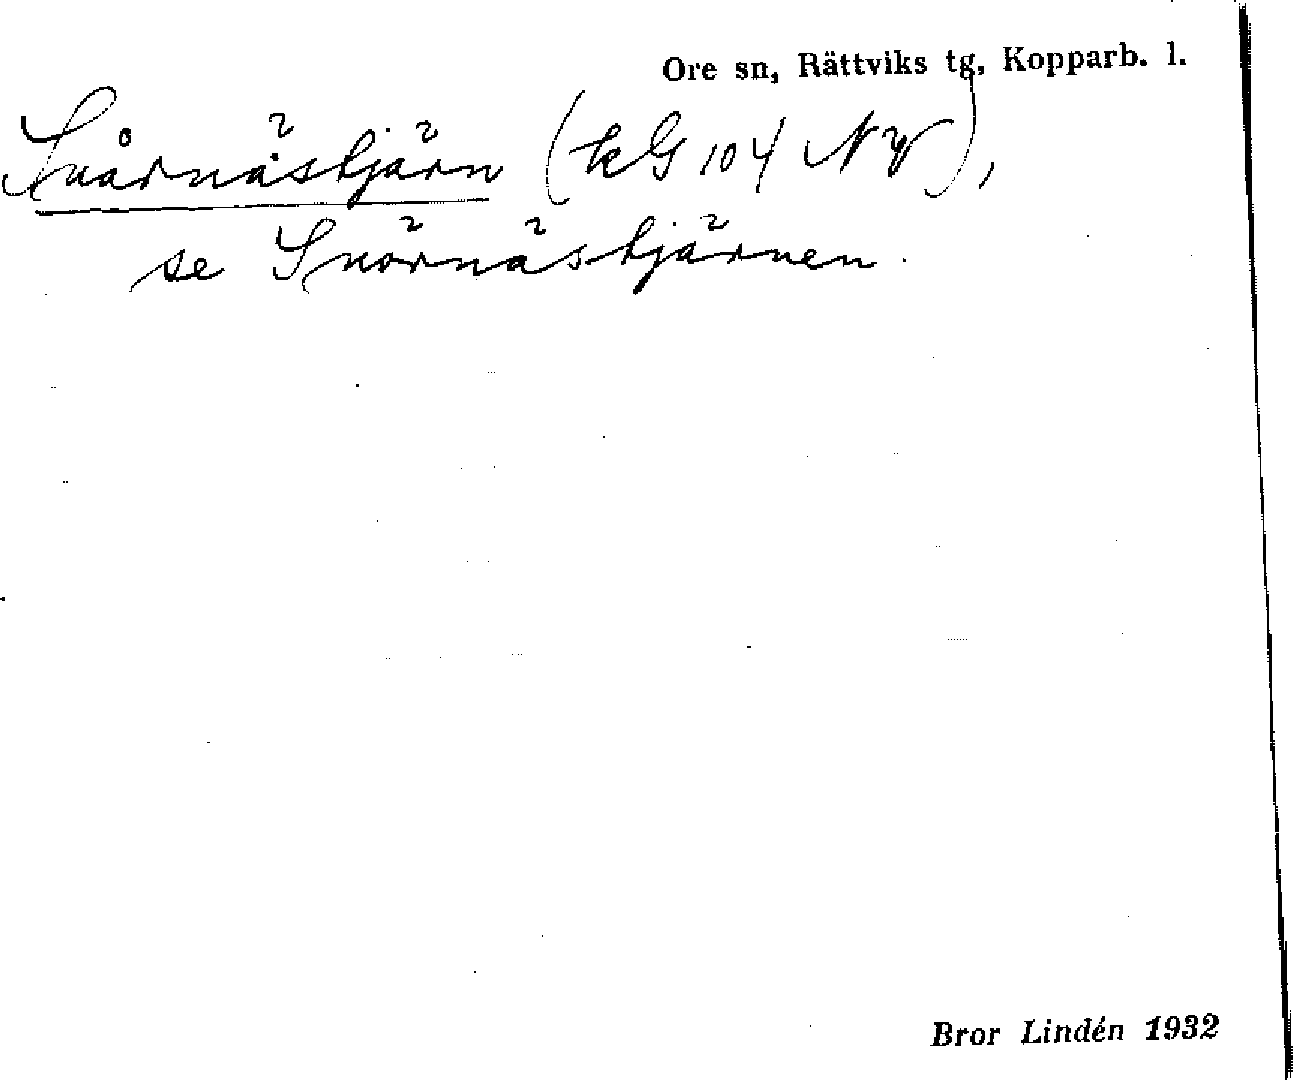 Ore sn, Rättviks tg, Kopparb. l.
Snårnästjärn (kG 104 NV),
se Snörnästjärnen.
Bror Lindén 1932